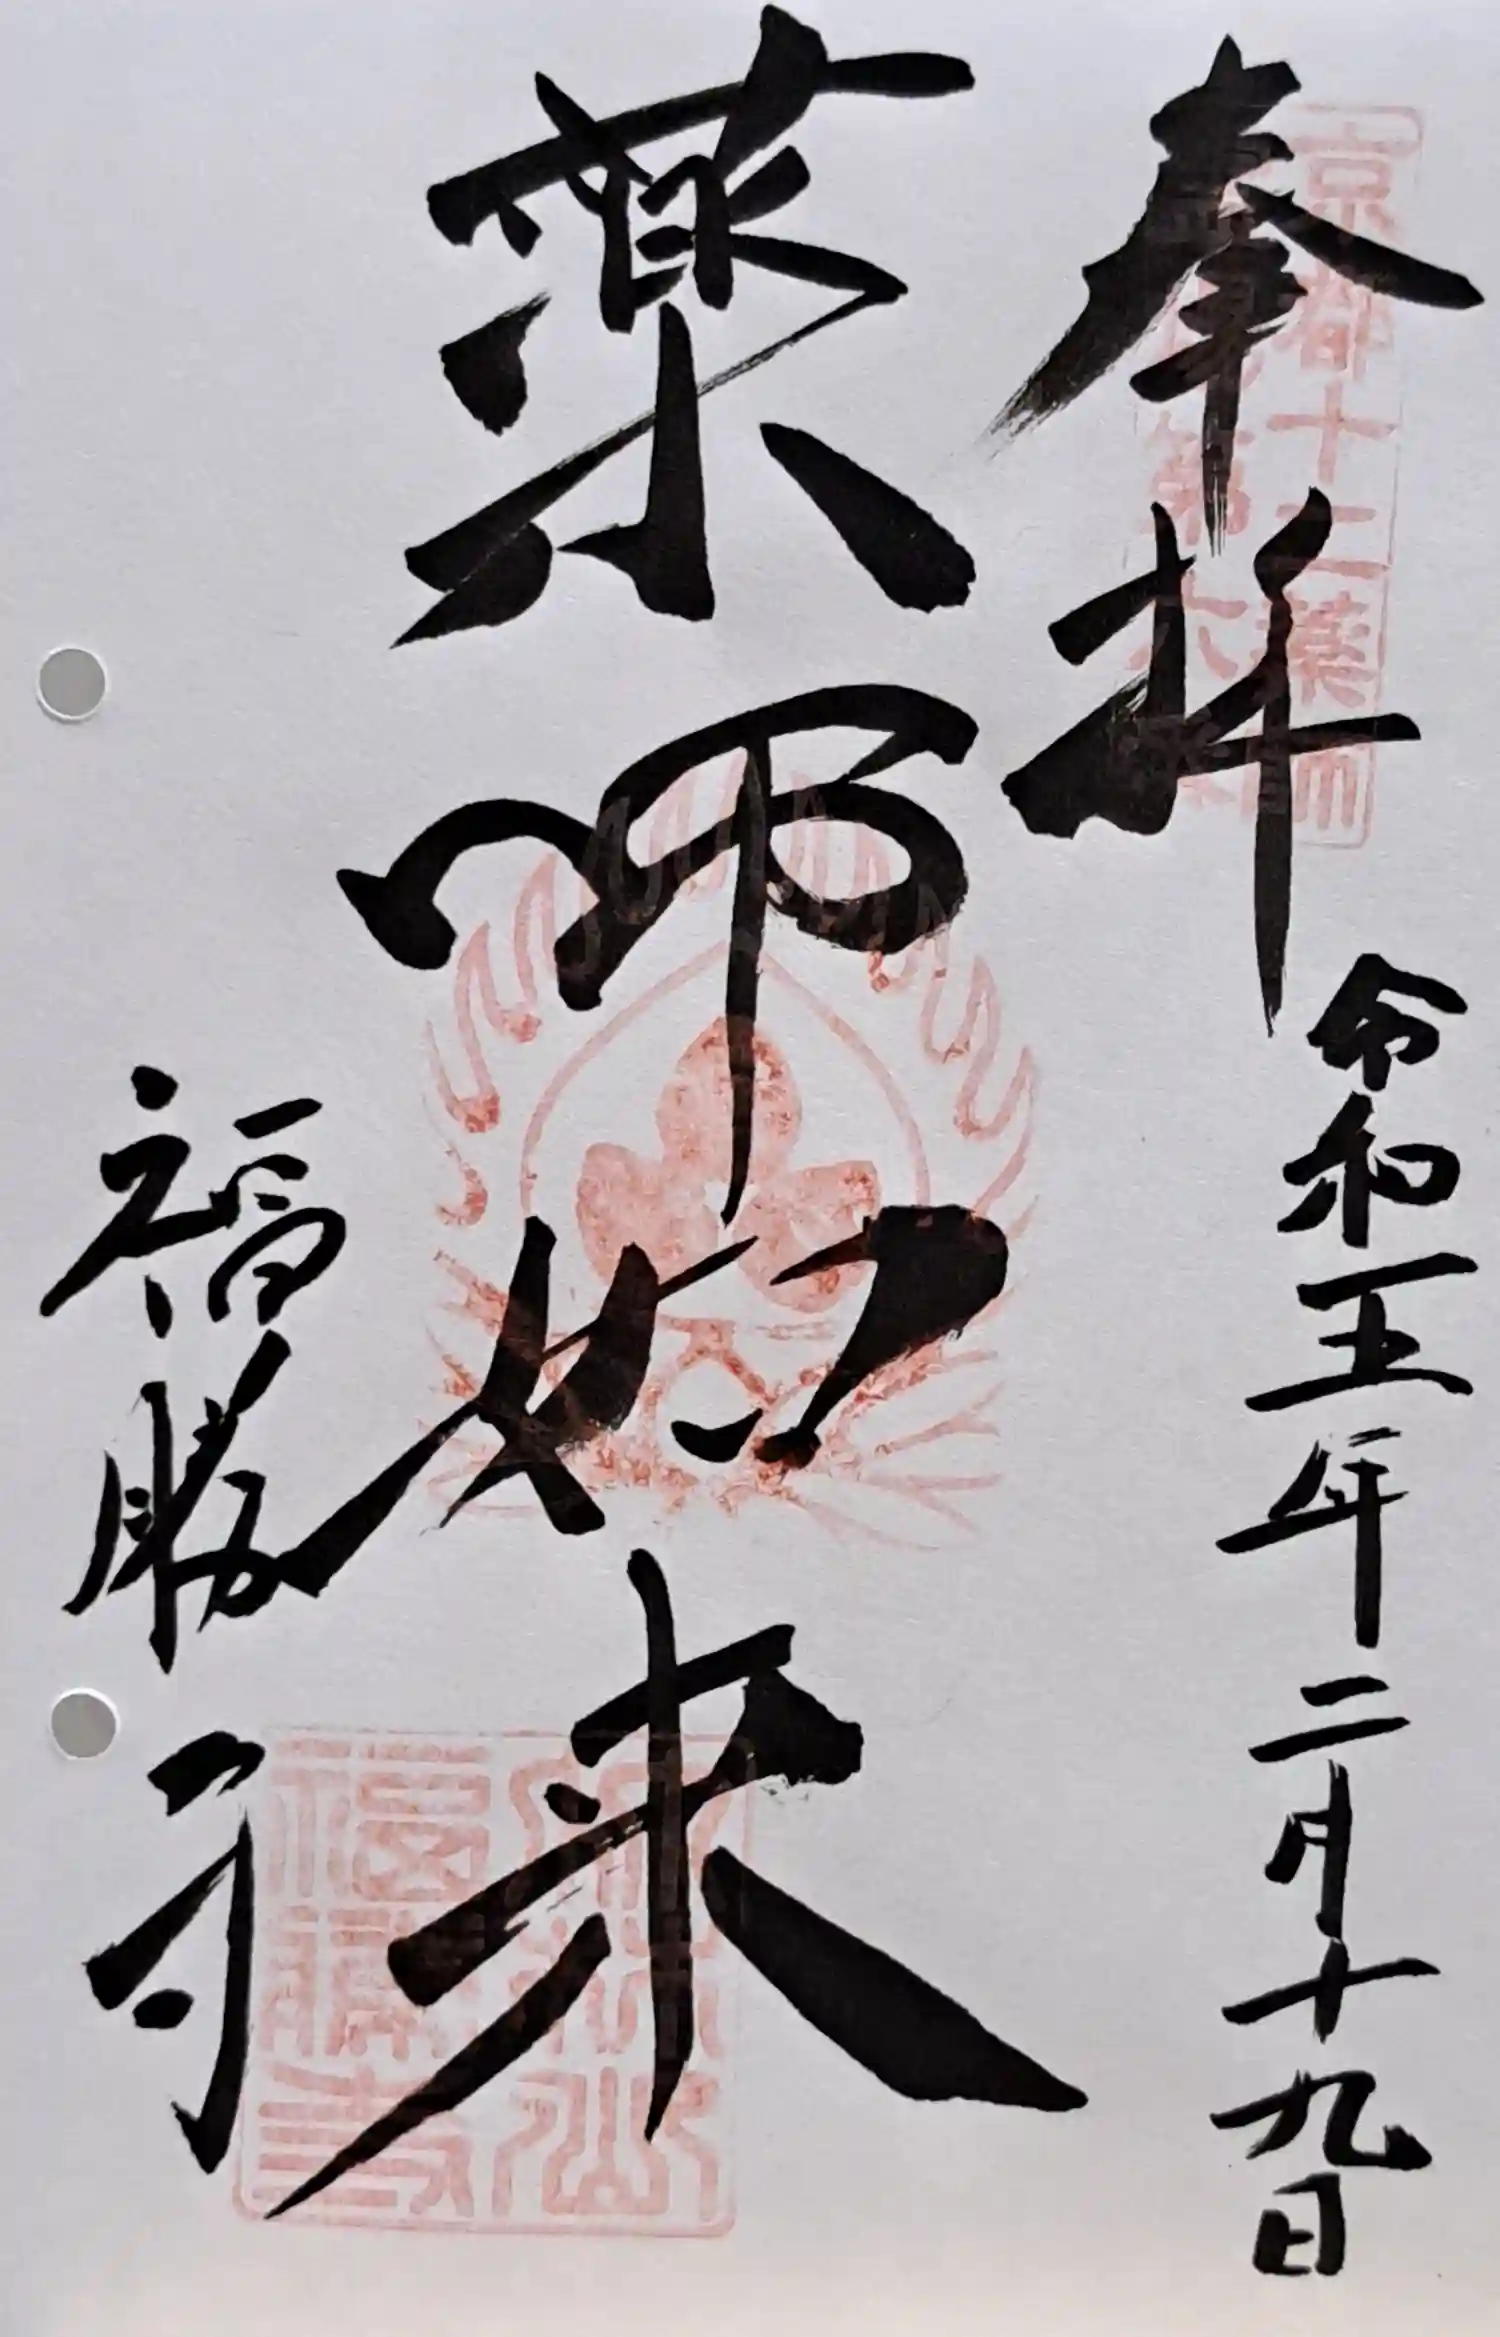 奉拝
京都十二薬師
令和五年二月十九日
薬師如来
福勝寺